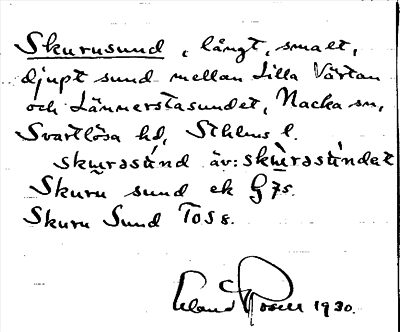 Skurusund, långt, smalt,
djupt sund mellan Lilla Värtan
och Lännerstasundet, Nacka sn,
Svartlösa hd, Sthlms l.
skurəsùnd äv: skùrəsùndət
Skuru sund ek G 75.
Skuru Sund Top 8.
1930.